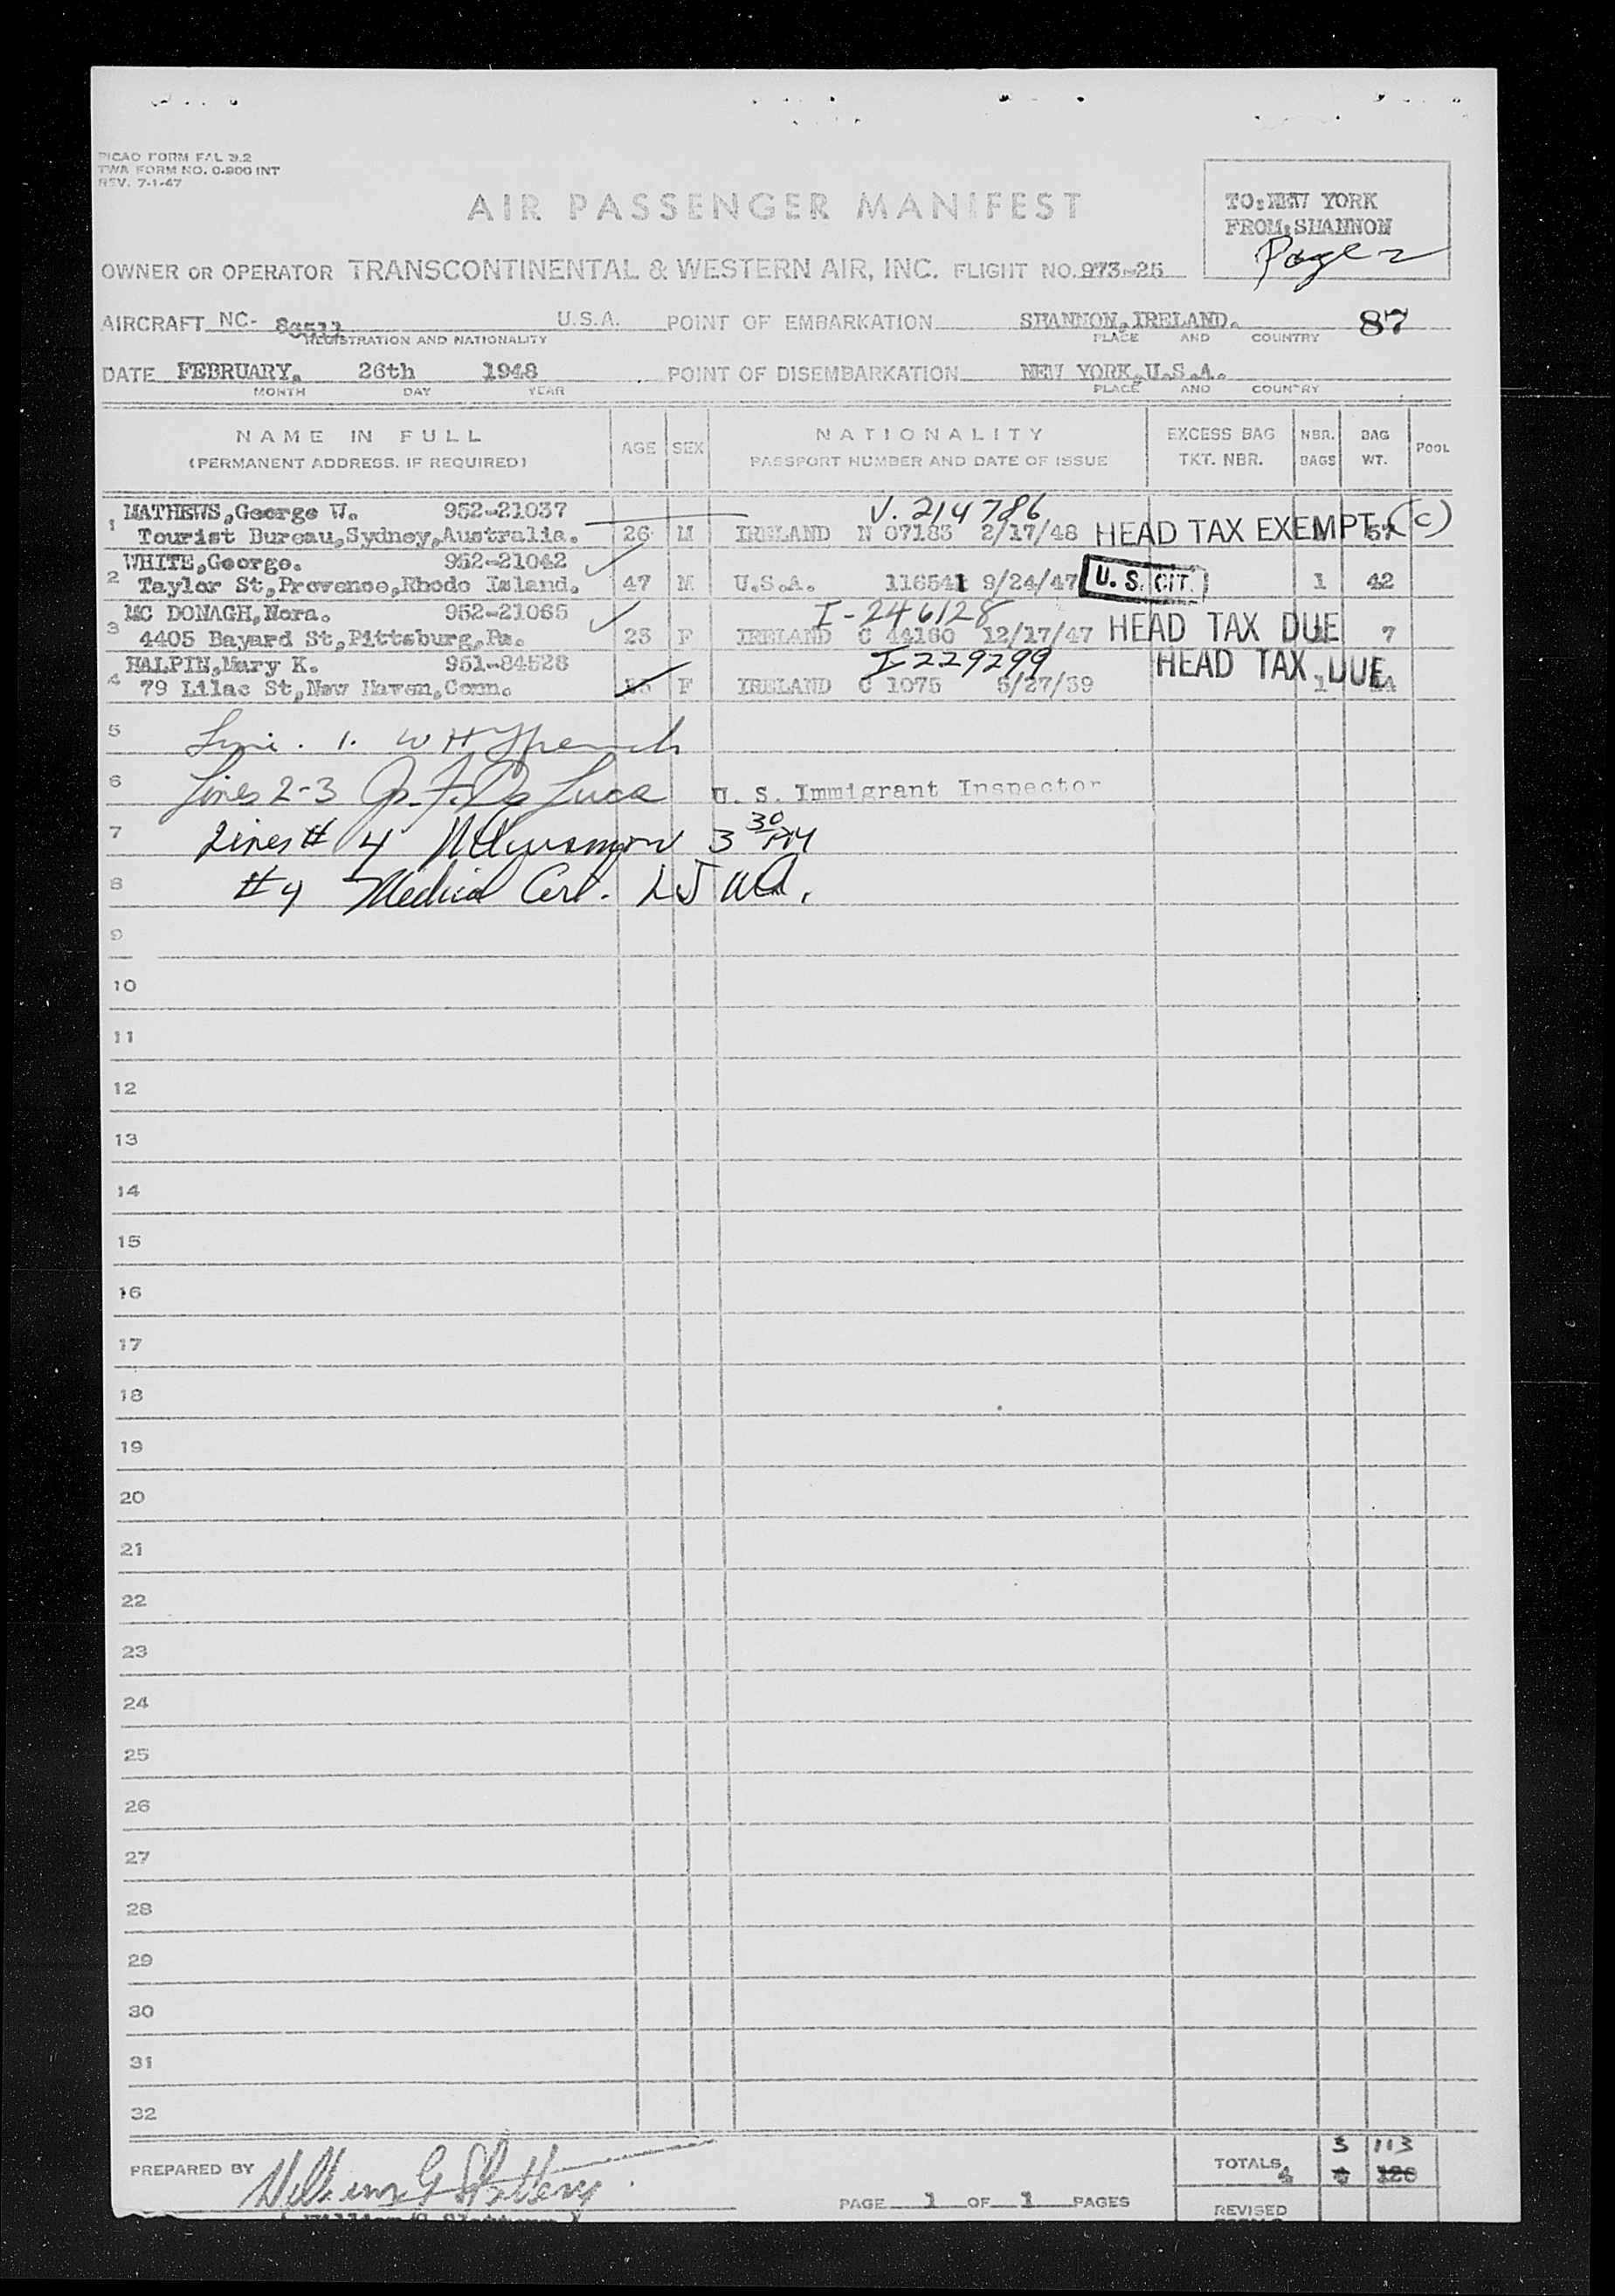 PICAO FORM FAL 3.2
TWA FORM NO. O-900 INT
REV. 7-1-47
AIR PASSENGER MANIFEST
TO: NEW YORK
FROM: SHANNON
Page 2
OWNER OR OPERATOR TRANSCONTINENTAL & WESTERN AIR, INC. FLIGHT NO. 973-25
AIRCRAFT NC- 86511 U.S.A. POINT OF EMBARKATION SHANNON,IRELAND. 87
REGISTRATION AND NATIONALITY PLACE AND COUNTRY
DATE FEBRUARY. 26th 1948 POINT OF DISEMBARKATION NEW YORK,U.S.A.
MONTH DAY YEAR PLACE AND COUNTRY
NAME IN FULL AGE SEX NATIONALITY EXCESS BAG NBR. BAG POOL
(PERMANENT ADDRESS. IF REQUIRED) PASSPORT NUMBER AND DATE OF ISSUE TKT. NBR. BAGS WT.
1 MATHEWS,George W. 952-21037 V. 214786
Tourist Bureau,Sydney,Australia. 26 M IRELAND N 07183 2/17/48 HEAD TAX EXEMPT 57 (C)
2 WHITE,George. 952-21042
Taylor St,Provence,Rhode Island. 47 M U.S.A. 116541 9/24/47 U. S. CIT. 1 42
3 MC DONAGH,Nora. 952-21065 I-246128
4405 Bayard St,Pittsburg,Pa. 23 F IRELAND C 44160 12/17/47 HEAD TAX DUE 7
4 HALPIN,Mary K. 951-84528 I-229299
79 Lilac St,New Haven,Conn. F IRELAND C 1075 5/27/39 HEAD TAX DUE 1
5 Line. 1. W H
6 Lines 2-3 J. F. De Luca U. S. Immigrant Inspector
7 Lines # 4 3 30 PM
8 #4 Medical Cert.
9
10
11
12
13
14
15
16
17
18
19
20
21
22
23
24
25
26
27
28
29
30
31
32
3 113
PREPARED BY William G Slattery TOTALS 4 4 120
PAGE 1 OF 1 PAGES
REVISED